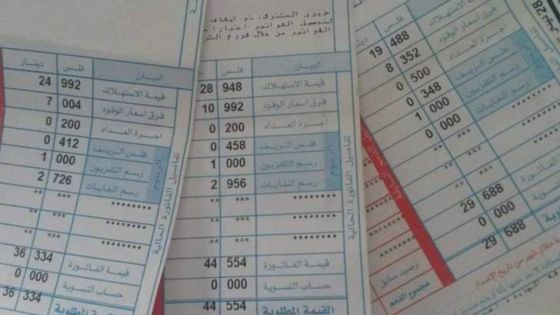 دينار فلس البيان
قيمة الاستهلاك 488 19
فرق اسعار الوقود 352 8
اجرة العداد 500 0
فلس الريف 348 0
رسم التلفزيون 000 1
رسم النفايات 000 0
688 29
000 0
688 29
رصيد سابق
مجموع الذمم
عزيزي المشترك: تم ايقاف
لتحصيل الفواتير اعتبارا
الفواتير من خلال فروع
البيان فلس دينار
قيمة الاستهلاك 948 28
فرق اسعار الوقود 992 10
اجرة العداد 200 0
فلس الريف 458 0
رسم التلفزيون 000 1
رسم النفايات 956 2
الرسوم
تفاصيل الفاتورة الحالية
********
********
قيمة الفاتورة 554 44
حساب التسوية 000 0
القيمة المطلوبة 554 44
البيان فلس دينار
قيمة الاستهلاك 992 24
فرق اسعار الوقود 004 7
اجرة العداد 200 0
فلس الريف 412 0
رسم التلفزيون 000 1
رسم النفايات 726 2
الرسوم
تفاصيل الفاتورة الحالية
********
********
قيمة الفاتورة 334 36
حساب التسوية 000 0
334 36